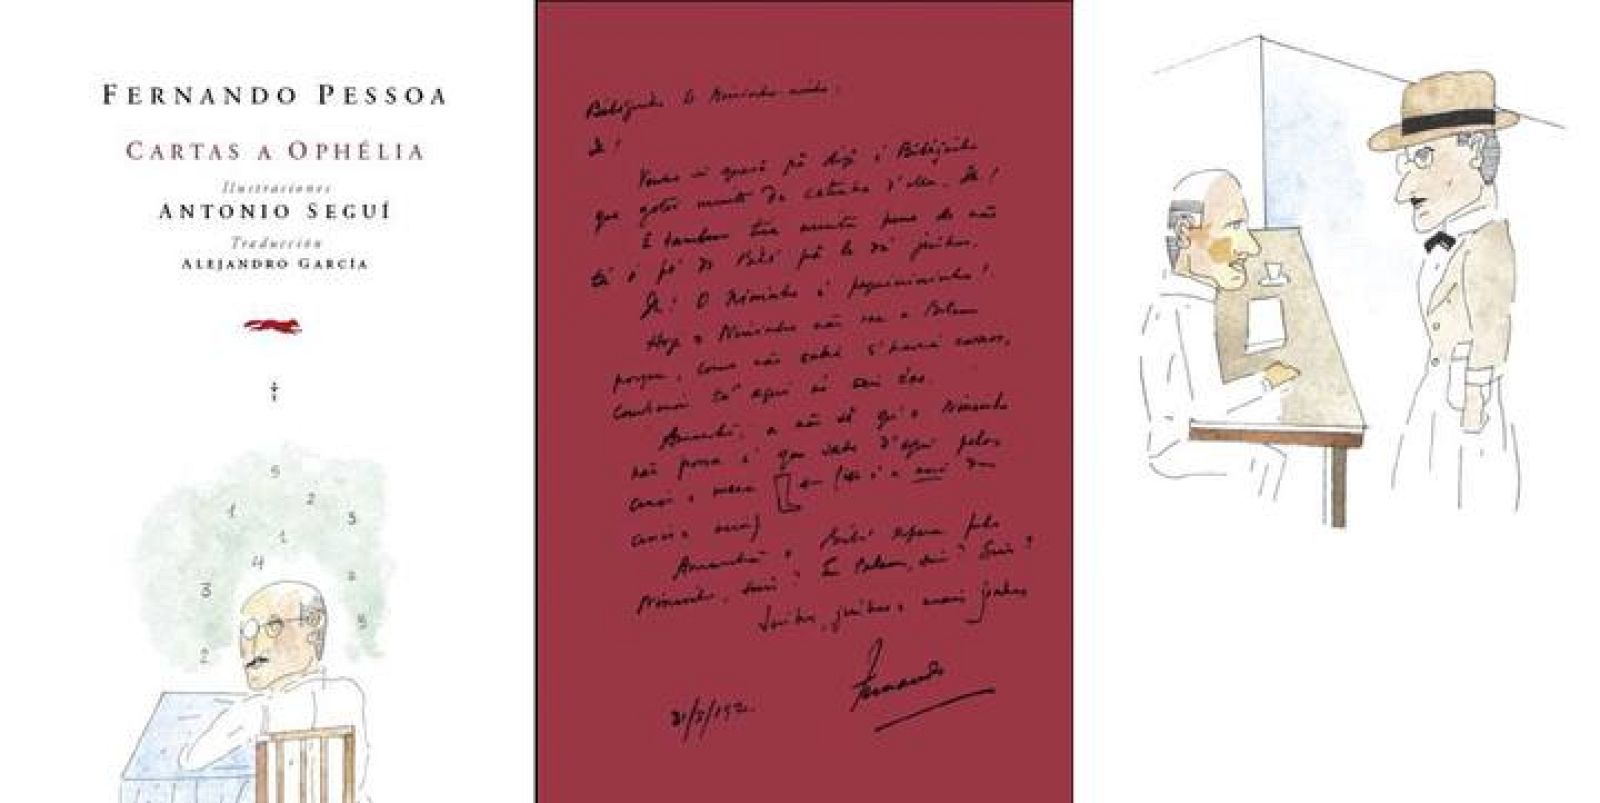 FERNANDO PESSOA
CARTAS A OPHÉLIA
Ilustraciones
ANTONIO SEGUÍ
Traducción
ALEJANDRO GARCÍA
5
1 2 3
1
4
3
2
5
Bébézinho do Nininho-ninho,
Oh!
Venho só quevê pâ dizê ó Bébézinho
que gotei muito da catinha d'ella. Oh!
E tambem tive munta pena de não
tá ó pé do Bébé pâ le dá jinhos.
Oh! O Nininho é pequinininho!
Hoje o Nininho não vae a Belem
porque, como não sabia s'havia carros,
combinei tá aqui ás seis óas.
Amanhã, a não sê qu'o Nininho
não possa é que sahe d'aqui pelas
cinco e meia (isto é a meia das
cinco e meia).
Amanhã o Bébé espera pelo
Nininho, sim? Em Belem, sim? Sim?
Jinhos, jinhos e mais jinhos
Fernando
31/5/192